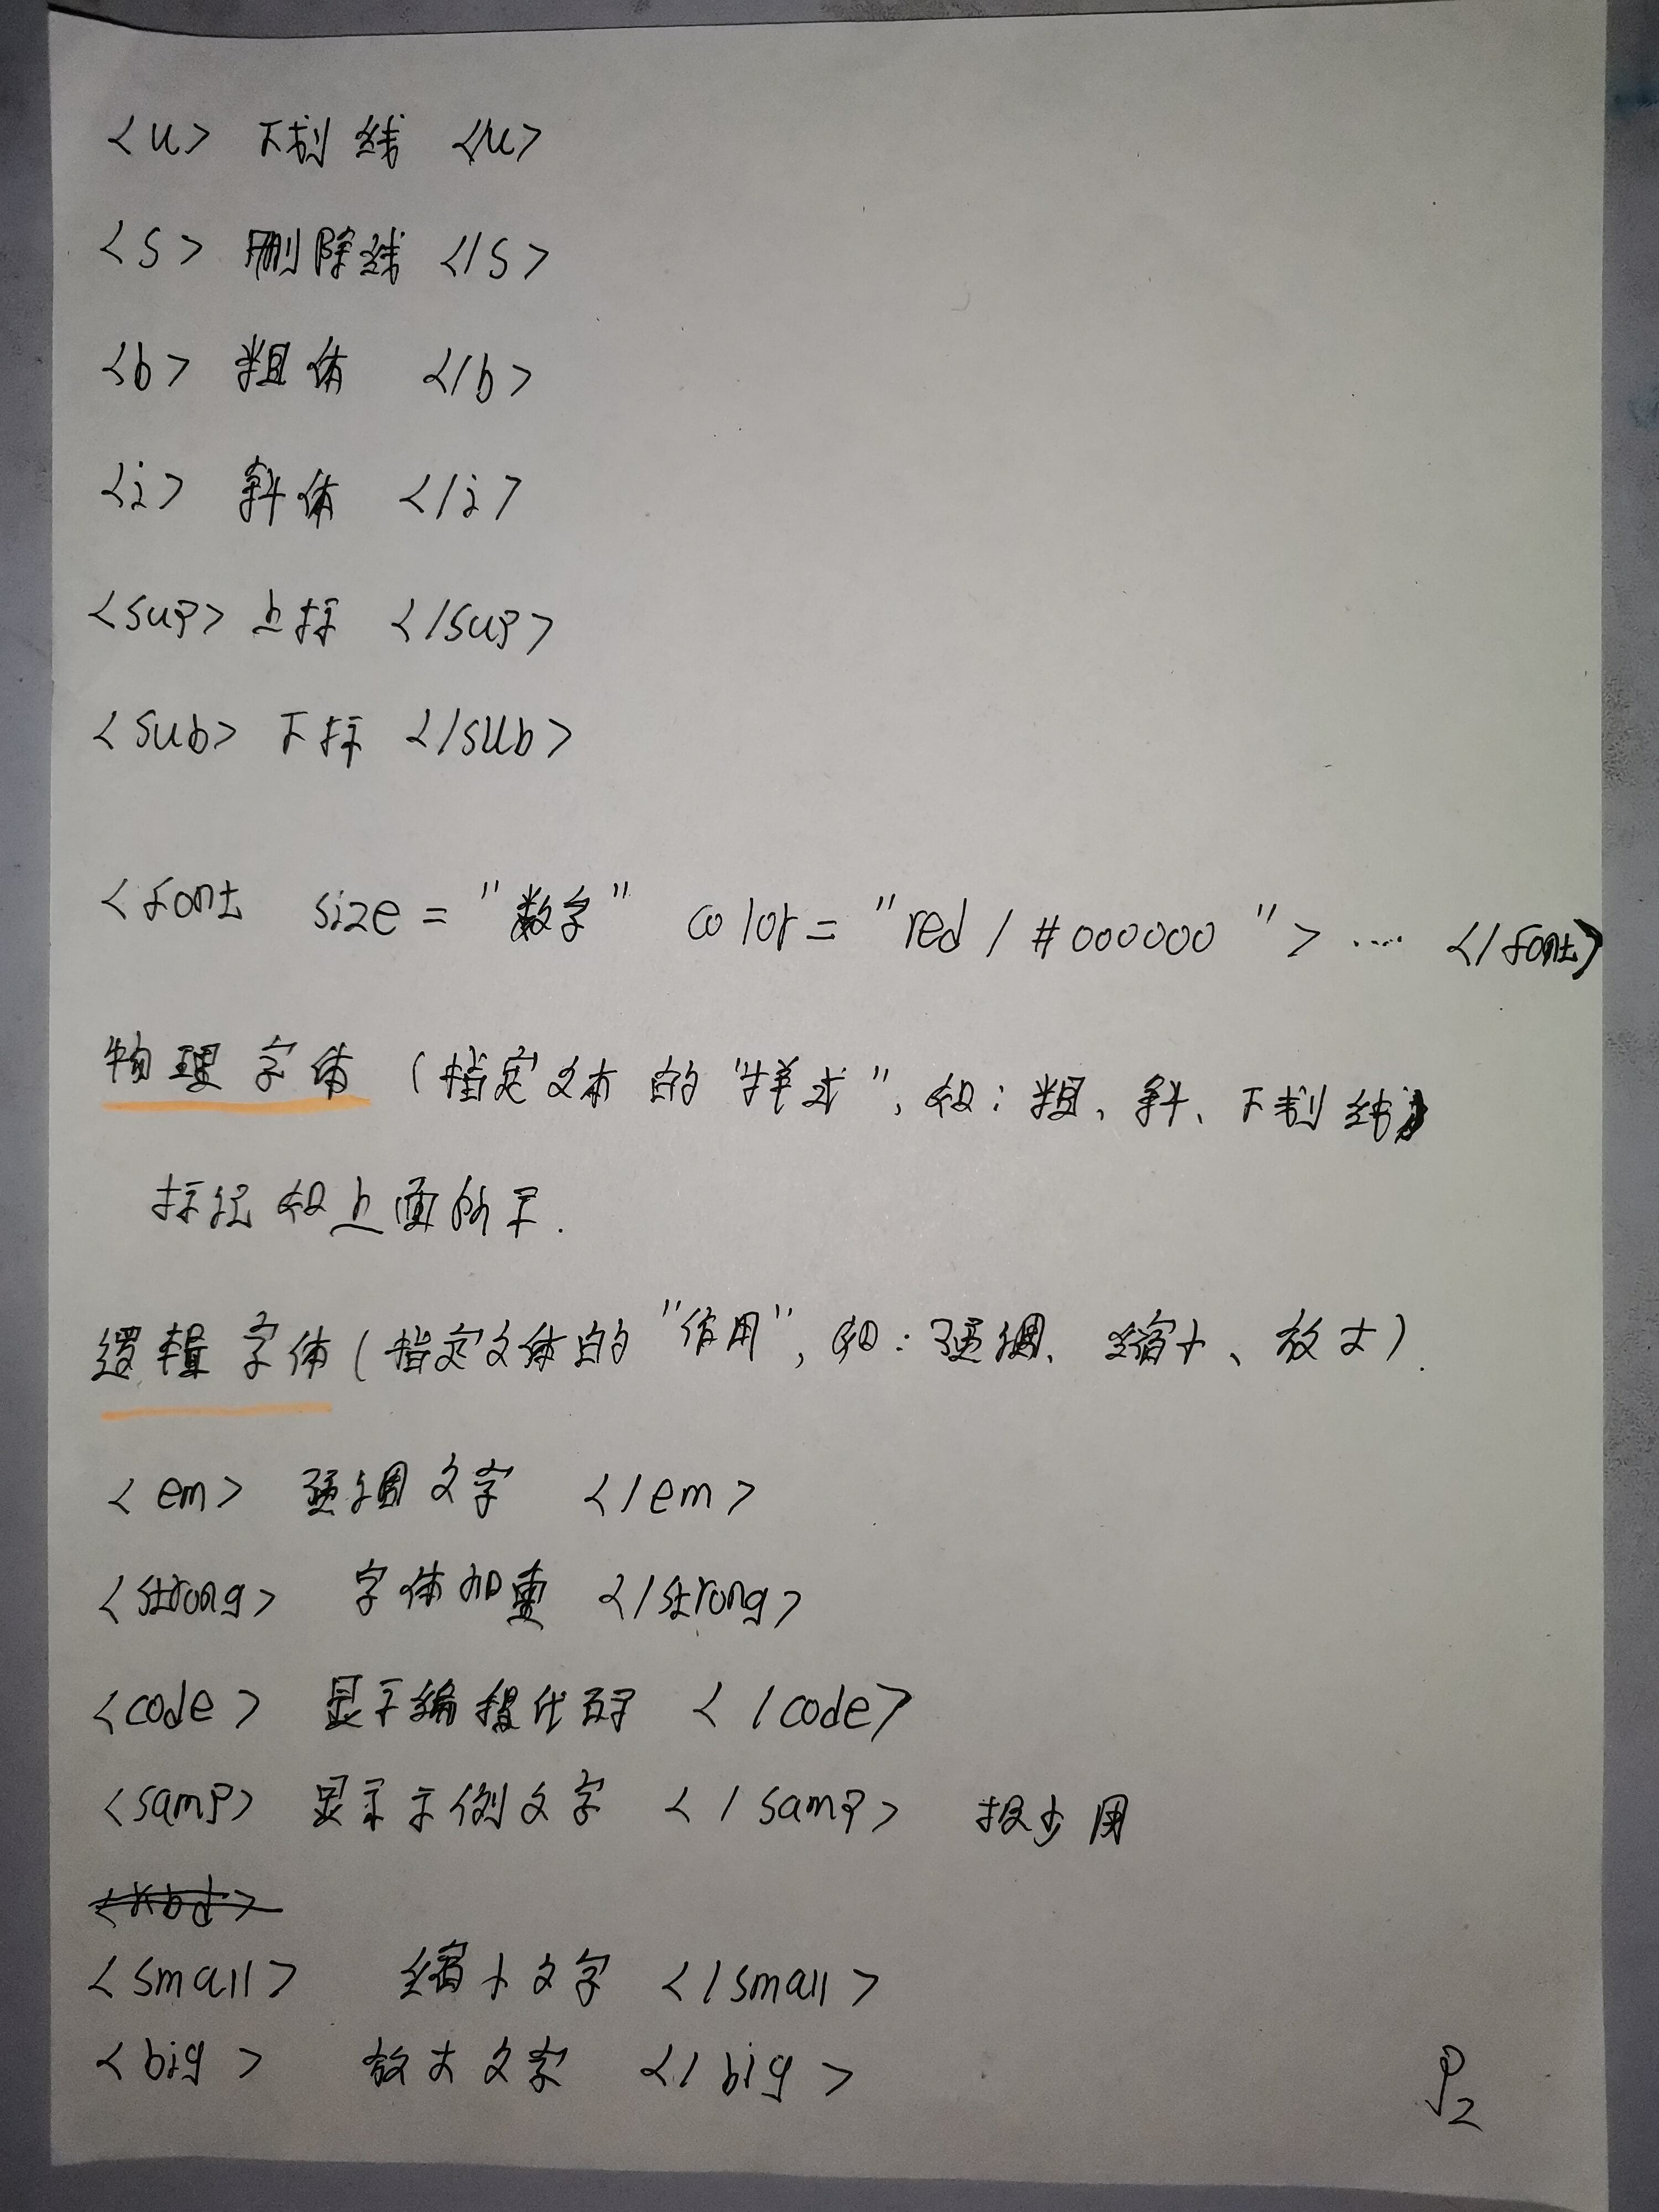 <u> 下划线 </u>
<s> 删除线 </s>
<b> 粗体 </b>
<i> 斜体 </i>
<sup> 上标 </sup>
<sub> 下标 </sub>
<font size = "数字" color = "red / #000000 "> .... </font>
物理字体 (指定文本的 "样式", 如: 粗、斜、下划线)
标记如上面所示.
逻辑字体 (指定文体的 "作用", 如: 强调、缩小、放大).
<em> 强调文字 </em>
<strong> 字体加重 </strong>
<code> 显示编程代码 </code>
<samp> 显示示例文字 </samp> 极少用
<kbd>
<small> 缩小文字 </small>
<big> 放大文字 </big>
P2